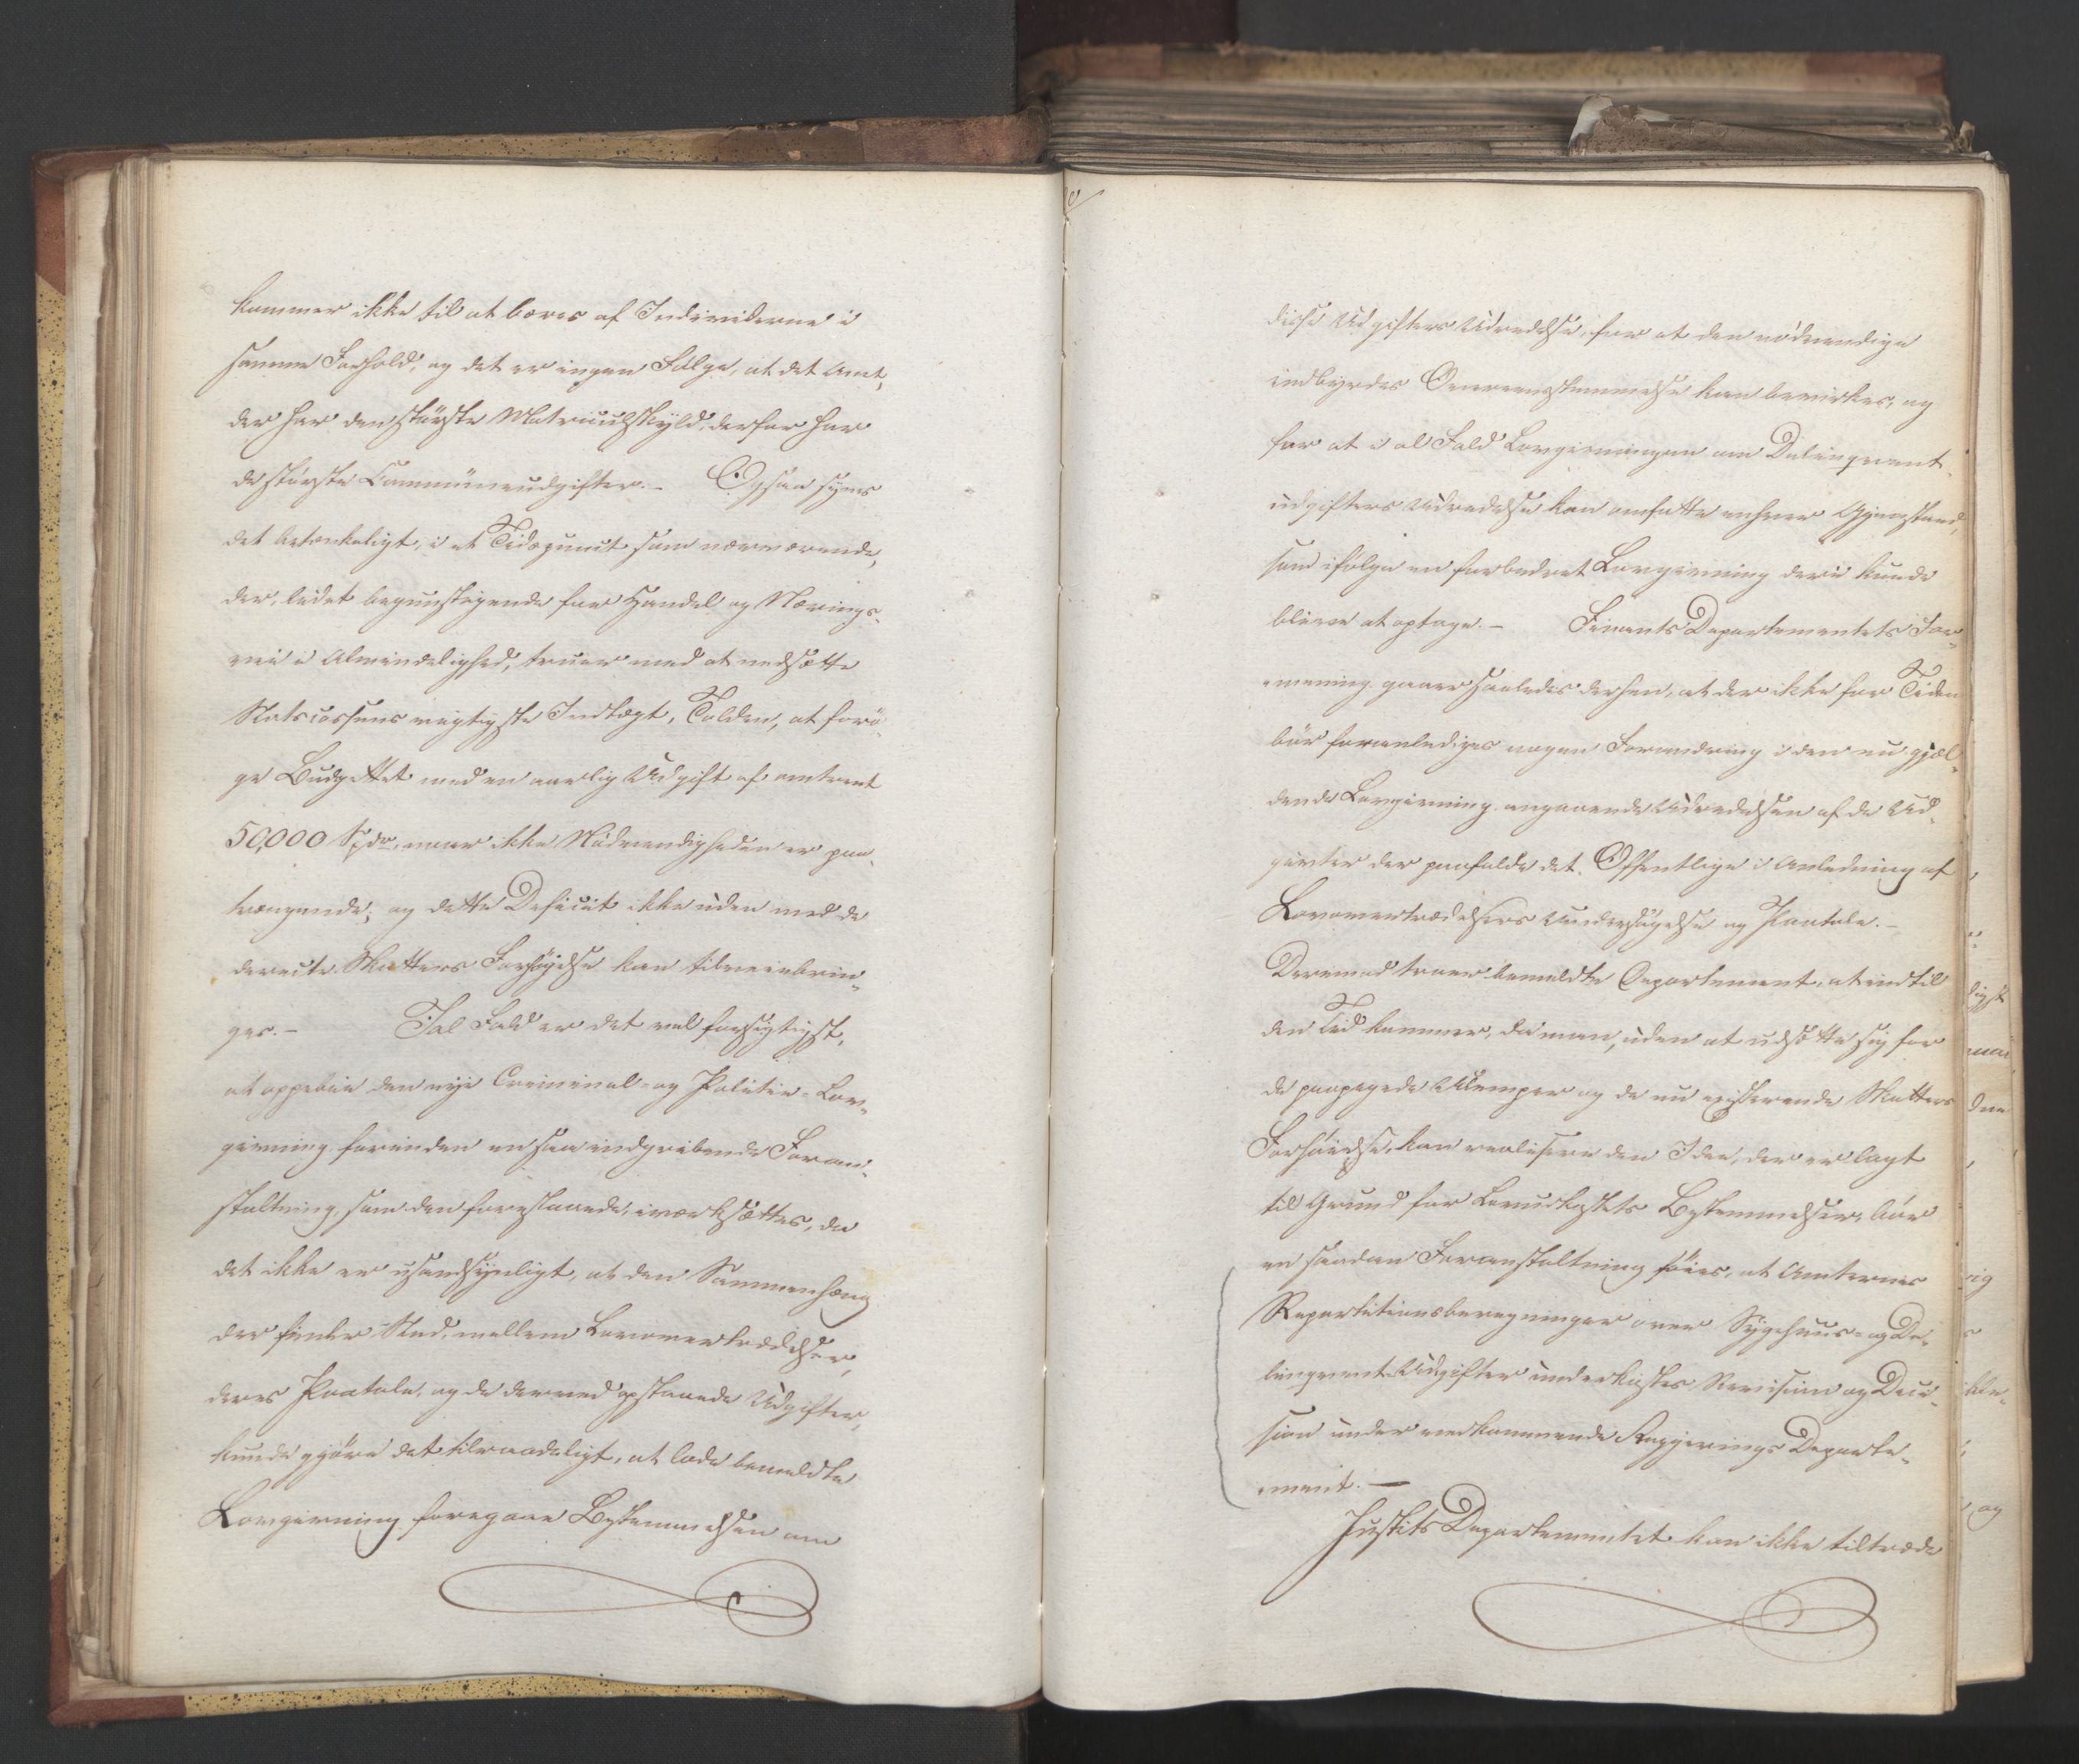 kommer ikke til at bæres af Individerne i
samme Forhold, og det er ingen Følge, at det Amt,
der har den største Matriculskyld, derfor har
de største Communeudgifter. – Ogsaa synes
det betænkeligt, i et Tidspunct som nærværende,
der, lidet begunstigende for Handel og Nærings-
vei i Almindelighed, truer med at nedsætte
Statscassens vigtigste Indtægt, Tolden, at forø-
ge Budgettet med en aarlig Udgift af omtrent
50,000 Spdr, naar ikke Nødvendigheden er paa-
trængende; og dette Deficit ikke uden med de
directe Skatters Forhøyelse kan tilveiebrin-
ges. – I al Fald er det vel forsigtigst,
at oppebie den nye Criminal- og Politie-Lov-
givning forinden en saa indgribende Foran-
staltning, som den foreslaaede, iværksættes, da
det ikke er usandsynligt, at den Sammenhæng
der finder Sted, mellem Lovovertrædelser,
deres Paatale, og de derved opstaaede Udgifter,
kunde gjøre det tilraadeligt, at lade bemeldte
Lovgivning foregaae Bestemmelsen om
disse Udgifters Udredelse, for at den nødvendige
indbyrdes Overeensstemmelse kan bevirkes, og
for at i al Fald Lovgivningen om Delinqvent-
udgifters Udredelse kan omfatte enhver Gjenstand,
som ifølge en forbedret Lovgivning deri kunde
blive at optage. – Finants Departementets For-
mening gaaer saaledes derhen, at der ikke for Tiden
bør foranlediges nogen Forandring i den nu gjæl-
dende Lovgivning angaaende Udredelsen af de Ud-
givter der paafalde det Offentlige i Anledning af
Lovovertrædelsers Undersøgelse og Paatale. –
Derimod troer bemeldte Departement, at indtil
den Tid kommer, da man, uden at udsætte sig for
de paapegede Ulemper og de nu existerende Skatters
Forhøielse, kan realisere den Idee, der er lagt
til Grund for Lovudkastets Bestemmelser, bør
en saadan Foranstaltning føies, at Amternes
Repartitionsberegninger over Sygehuus- og De-
linqvent-Udgifter underkastes Revision og Deci-
sion under vedkommende Regjerings Departe-
ment. –
Justits Departementet kan ikke tiltræde